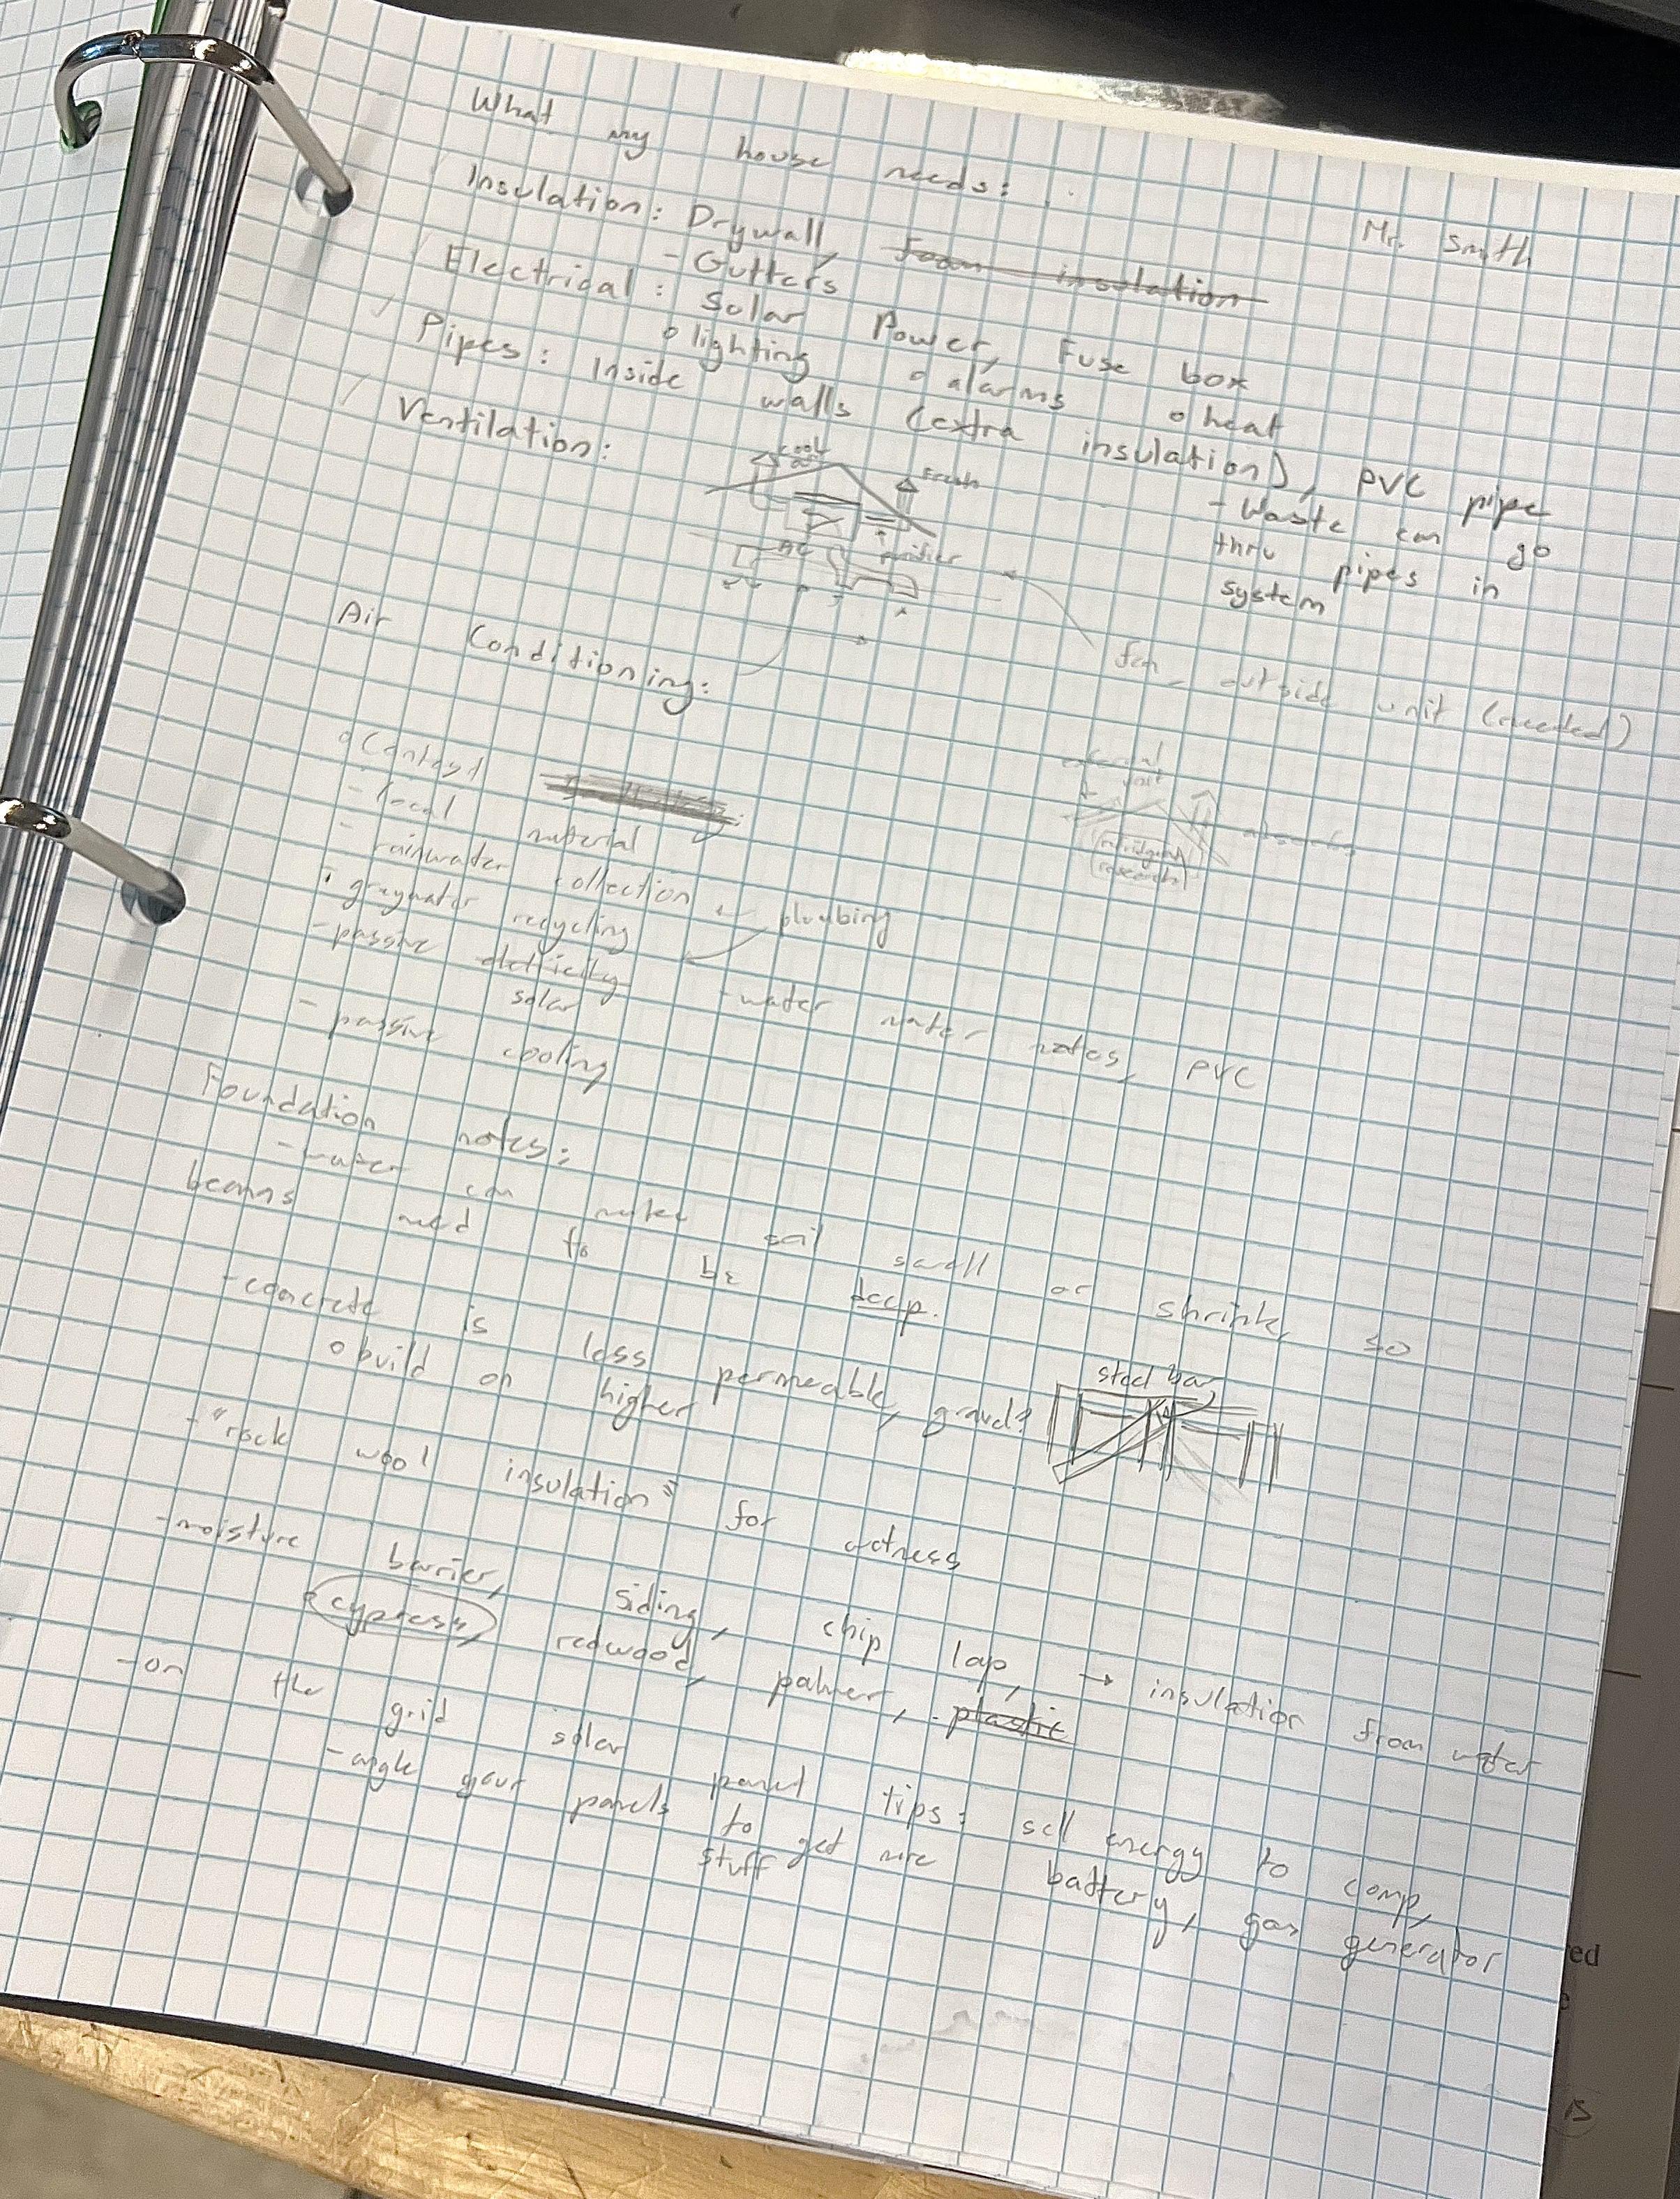 What my house needs:
Mr. Smith
Insulation: Drywall, Foam insulation
- Gutters
Electrical: Solar Power, Fuse box
o lighting o alarms o heat
Pipes: Inside walls (extra insulation), PVC pipe
- Waste can go
thru pipes in
system
Ventilation:
cool
air
Fresh
AC
purifier
Air Conditioning:
fan, outside unit (needed)
external
unit
absorbs
refridgerant
research
- local material
- rainwater collection
plumbing
- graywater recycling
- passive eletricity
solar
- water water rates, PVC
- passive cooling
Foundation notes:
- water can make soil swell or shrink, so
beams need to be deep.
- concrete is less permeable, gravel?
steel bar
o build on higher
- "rock wool insulation" for wetness
- moisture barrier, siding, chip lap, → insulation from water
cypress, redwood, palmer, plastic
- on the grid solar panel tips: sell energy to comp,
- angle your panels to get more battery, gas generator
stuff
ed